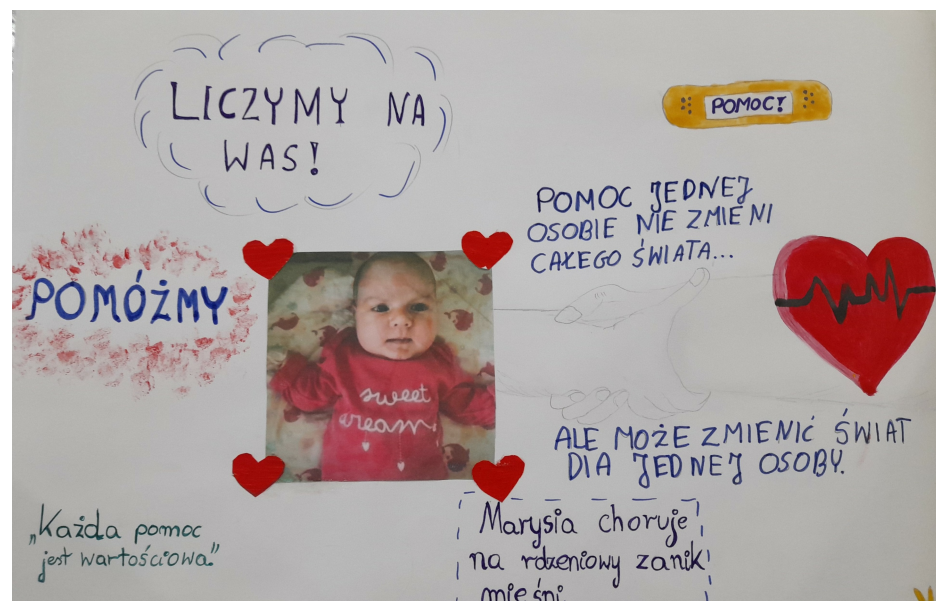 LICZYMY NA
WAS!
POMOC!
POMOC JEDNEJ
OSOBIE NIE ZMIENI
CAŁEGO ŚWIATA...
POMÓŻMY
sweet
dream
ALE MOŻE ZMIENIĆ ŚWIAT
DLA JEDNEJ OSOBY.
„Każda pomoc
jest wartościowa."
Marysia choruje
na rdzeniowy zanik
mięśni.